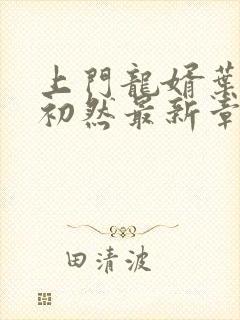 上門龍婿葉
初然最新章
田清波